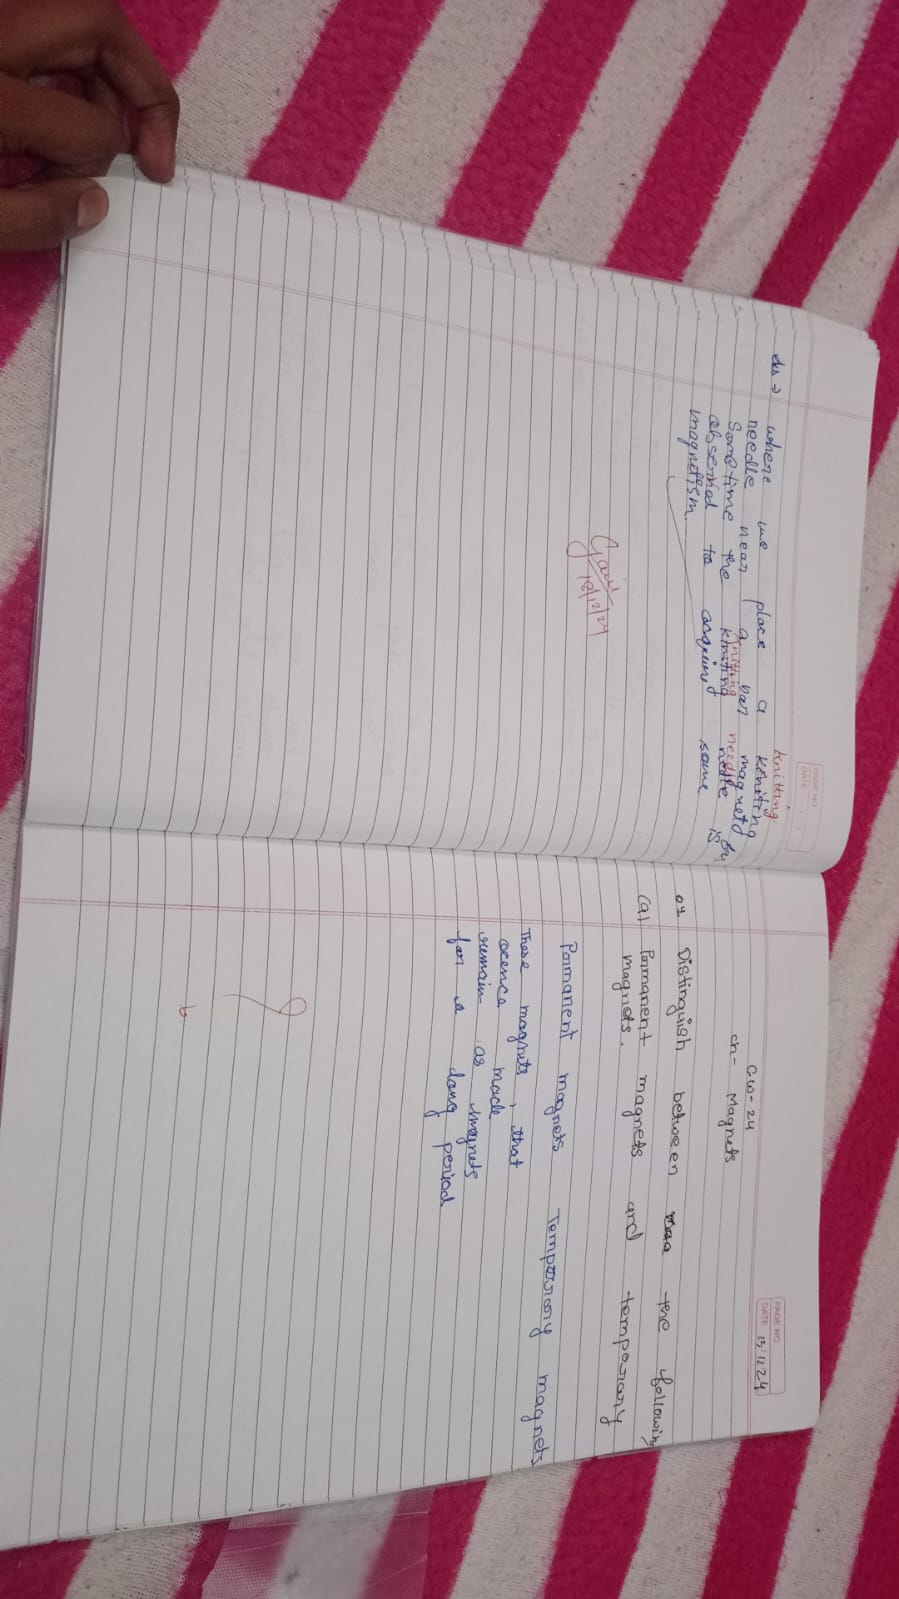 PAGE NO
DATE / /
knitting
Ans → where we place a kniting
needle near a bar magnetd
knitting needle
Sometime the kniting nedle is
observed to acquired some
magnetism
18/12/24
PAGE NO
DATE 13/12 24
CW-24
Ch- Magnets
Distinguish between the following
(a) Pormanent magnets and temporary
magnets.
Pormanent magnets Temporary magnets
These magnets, that
made
remain as magnets
for a long period